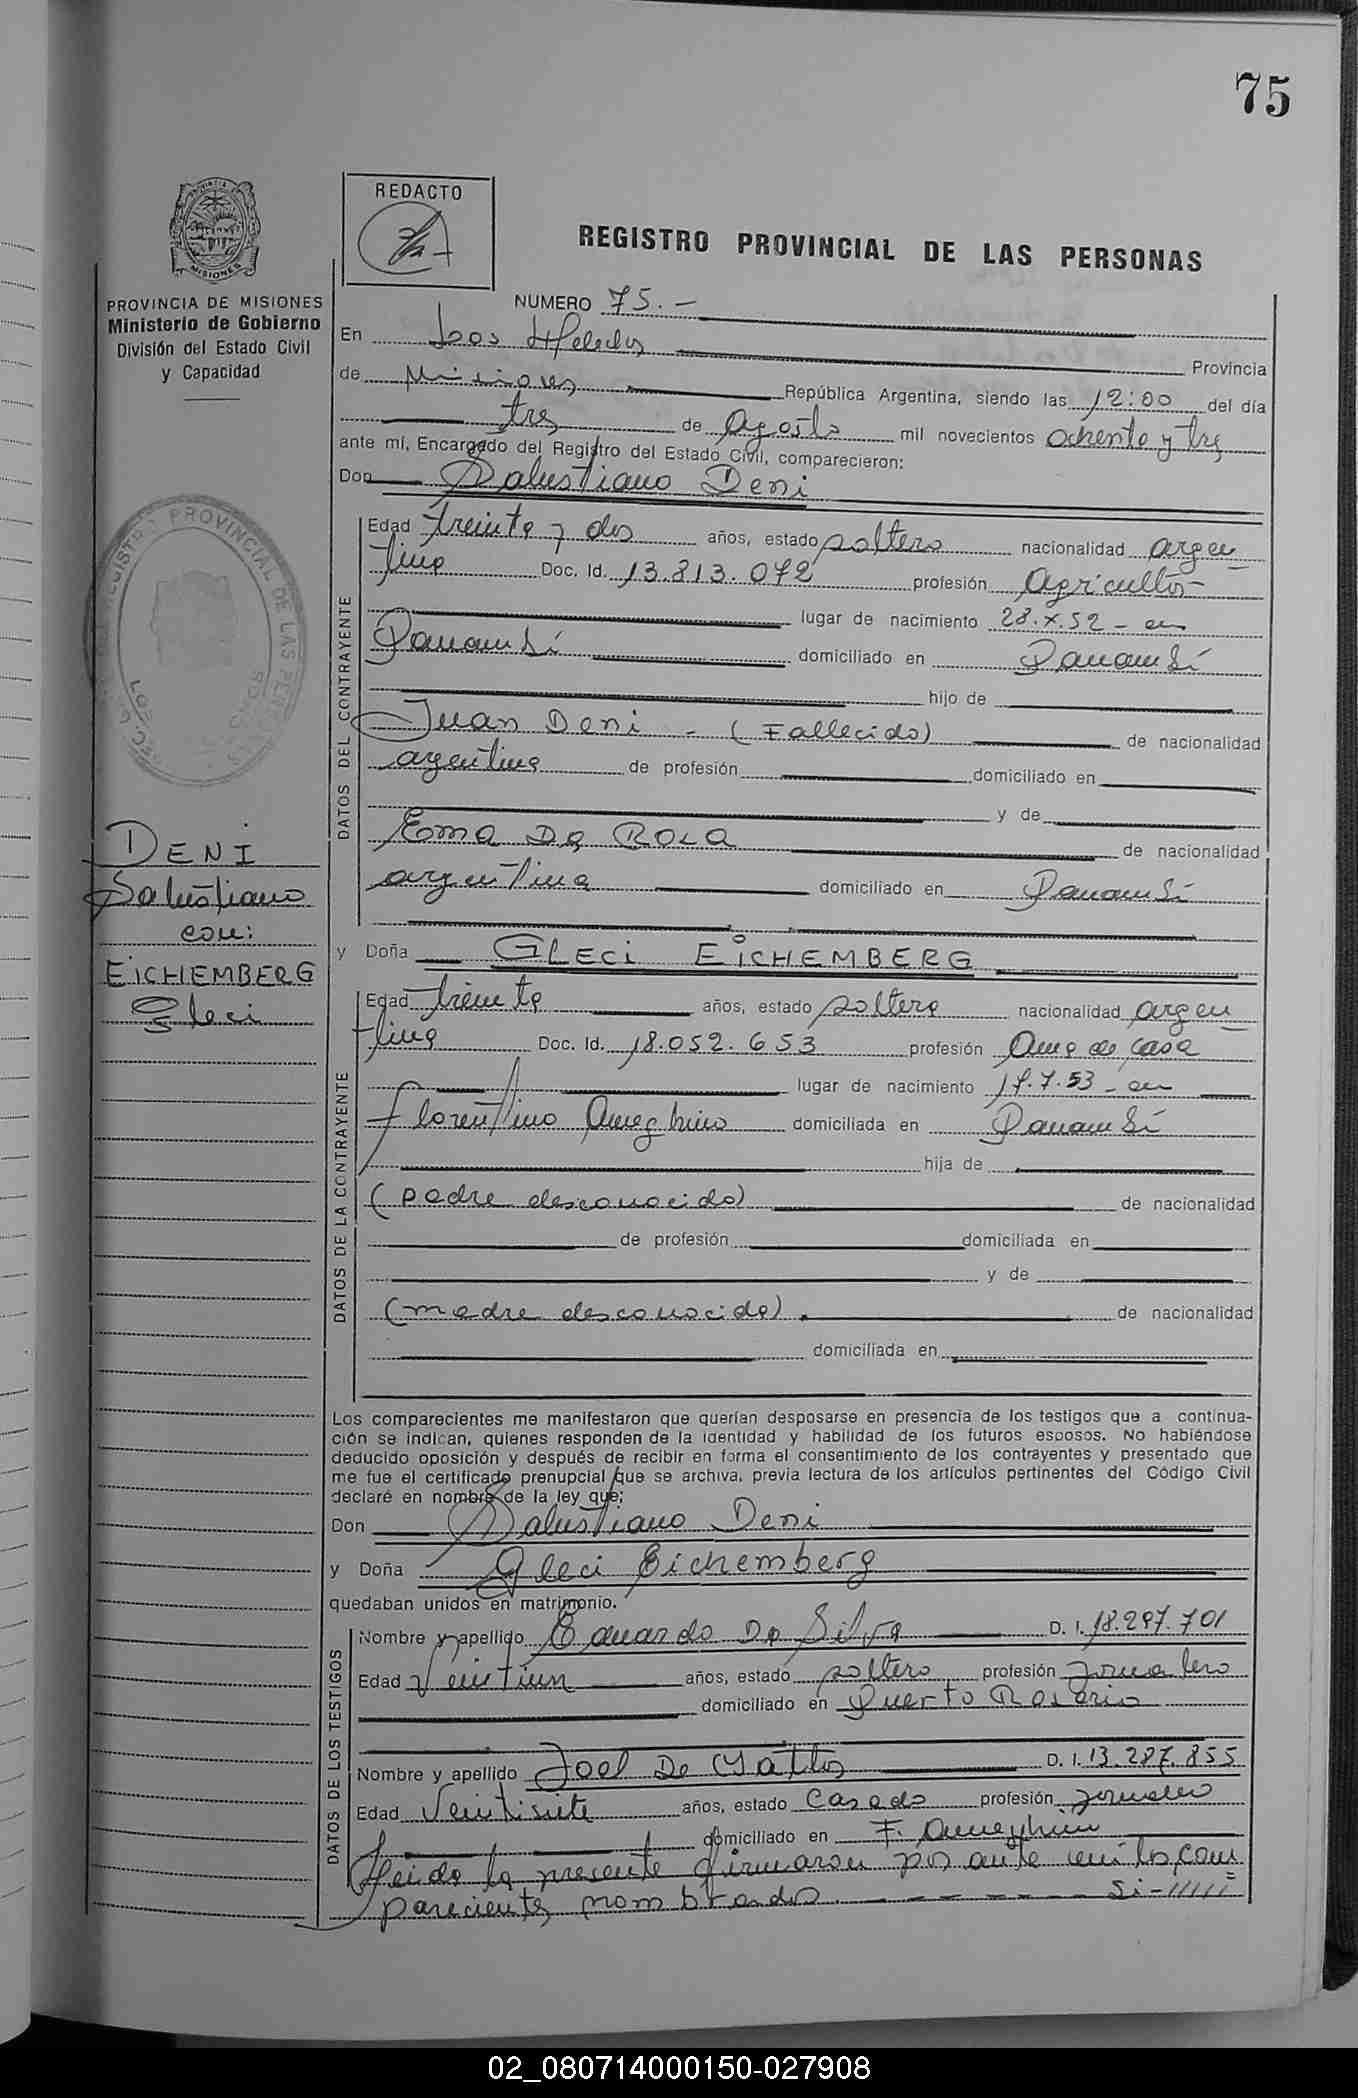 75
REDACTO
REGISTRO PROVINCIAL DE LAS PERSONAS
MISIONES
PROVINCIA DE MISIONES
Ministerio de Gobierno
División del Estado Civil
y Capacidad
NUMERO 75.-
En Los Helechos Provincia
de Misiones República Argentina, siendo las 12:00 del día
tres de Agosto mil novecientos ochenta y tres
ante mí, Encargado del Registro del Estado Civil, comparecieron:
Don Salustiano Deni
DATOS DEL CONTRAYENTE
Edad treinta y dos años, estado soltero nacionalidad argen
tina Doc. Id. 13.813.072 profesión Agricultor
lugar de nacimiento 28.X.52 - en
Panambí domiciliado en Panambí
hijo de
Juan Deni - (Fallecido) de nacionalidad
argentina de profesión domiciliado en
y de
Ema Da Rosa de nacionalidad
argentina domiciliado en Panambí
DENI
Salustiano
con:
EICHEMBERG
Gleci
y Doña GLECI EICHEMBERG
DATOS DE LA CONTRAYENTE
Edad treinta años, estado soltera nacionalidad argen
tina Doc. Id. 18.052.653 profesión Ama de casa
lugar de nacimiento 17.7.53 - en
Florentino Ameghino domiciliada en Panambí
hija de
(padre desconocido) de nacionalidad
de profesión domiciliada en
y de
(madre desconocida). de nacionalidad
domiciliada en
Los comparecientes me manifestaron que querían desposarse en presencia de los testigos que a continua-
ción se indican, quienes responden de la identidad y habilidad de los futuros esposos. No habiéndose
deducido oposición y después de recibir en forma el consentimiento de los contrayentes y presentado que
me fue el certificado prenupcial que se archiva, previa lectura de los artículos pertinentes del Código Civil
declaré en nombre de la ley que;
Don Salustiano Deni
y Doña Gleci Eichemberg
quedaban unidos en matrimonio.
DATOS DE LOS TESTIGOS
Nombre y apellido Eduardo Da Silva D. I. 18.297.701
Edad Veintiun años, estado soltero profesión Jornalero
domiciliado en Puerto Rosario
Nombre y apellido Joel De Mattos D. I. 13.287.855
Edad Veintisiete años, estado Casado profesión Jornalero
domiciliado en F. Ameghino
Leida la presente firmaron por ante mí los com
parecientes nombrados - - - - - Si-//////
02_080714000150-027908